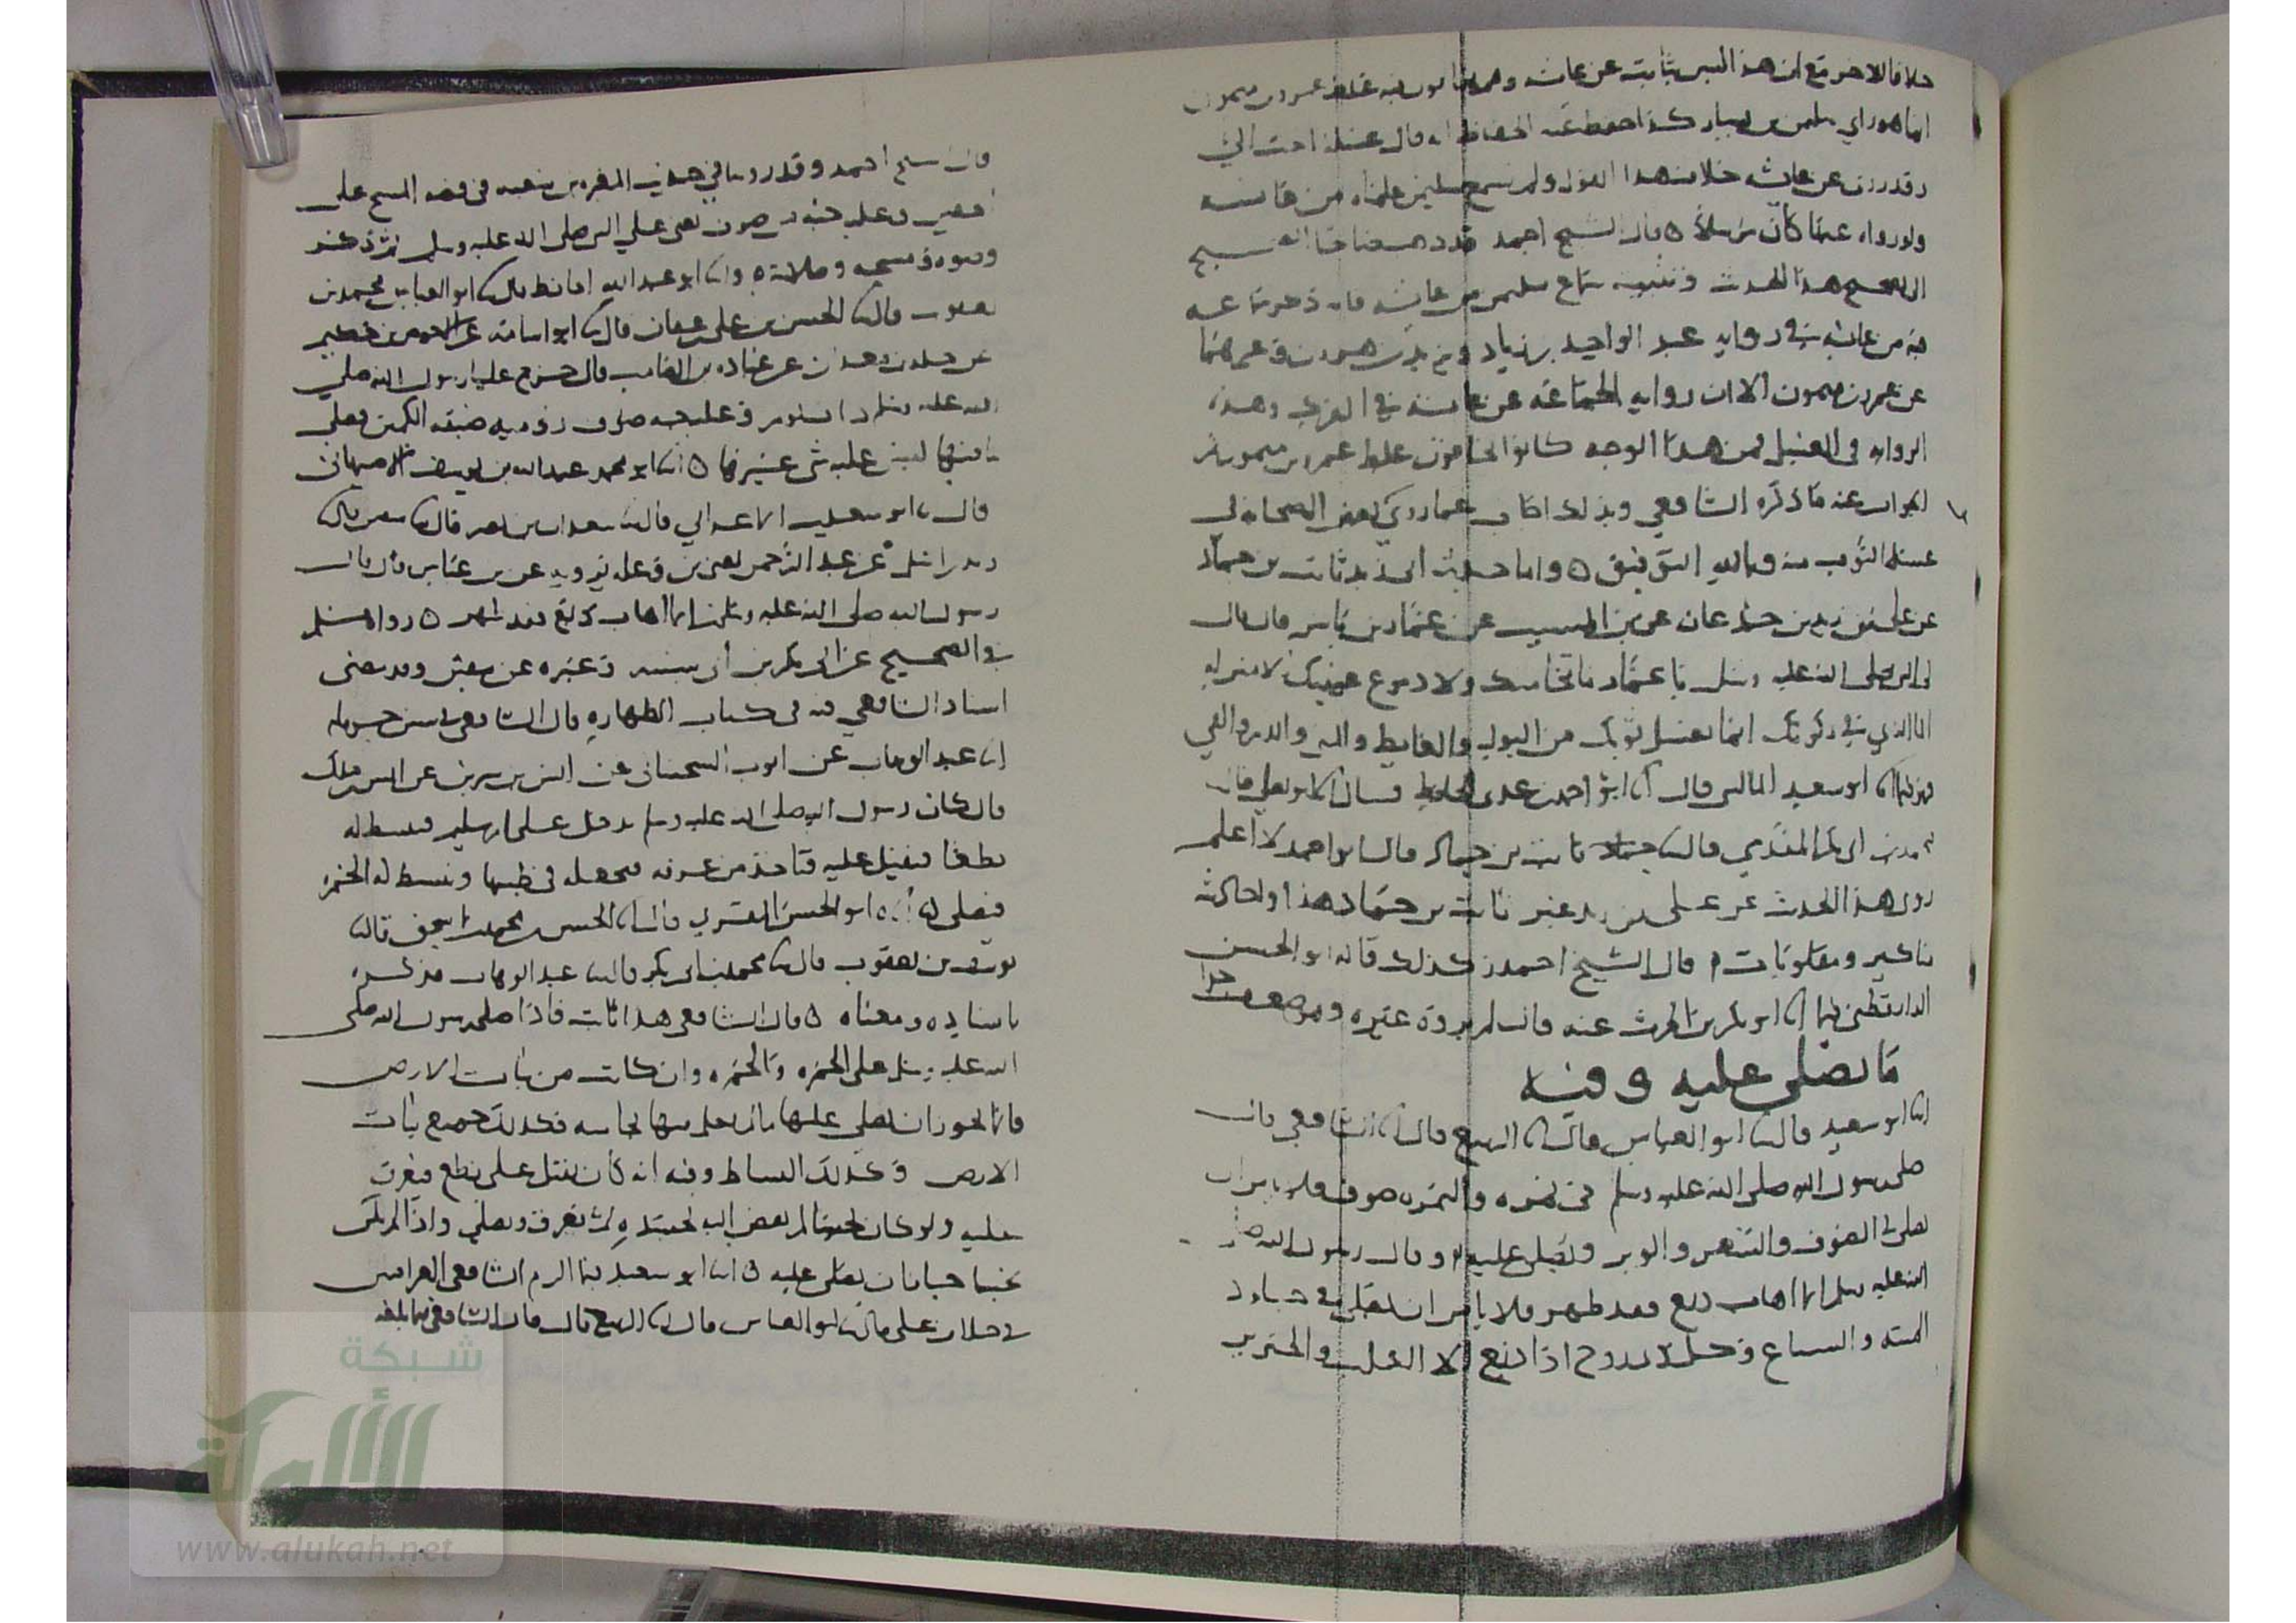 خلافا للاخر مع ان هذا ليس بثابت عن عائشة وهم يخافون فيه غلط عمرو بن ميمون
انما هو راي سليمن بن يسار كذا حفظ عنه الحفاظ انه قال غسله احب الي
وقد روي عن عائشة خلاف هذا القول ولم يسمع سليمن علمناه من عائشة
ولو رواه عنها كان مرسلا ٥ قال الشيخ احمد قد ذهب صاحبا الصحيح
الى تصحيح هذا الحديث وتثبيت سماع سليمن من عائشة فانه ذكر سماعه
فيه من عائشة في رواية عبد الواحد بن زياد ويزيد بن هرون وغيرهما
عن عمرو بن ميمون الا ان رواية الجماعة عن عائشة في الفرك وهذه
الرواية في الغسل فمن هذا الوجه كانوا يخافون غلط عمرو بن ميمون ثم
الجواب عنه ما ذكره الشافعي وبذلك اجاب عما روي عن بعض الصحابة في
غسل الثوب منه وبالله التوفيق ٥ واما حديث ابي زيد ثابت بن حماد
عن علي بن زيد بن جدعان عن بن المسيب عن عمار بن ياسر قال قال
لي النبي صلى الله عليه وسلم يا عمار ما نخامتك ولا دموع عينيك الا بمنزلة
الماء الذي في ركوتك انما تغسل ثوبك من البول والغايط والمني والدم والقي
فهذا انا ابو سعيد الماليني قال انا ابو احمد بن عدي الحافظ قال انا ابو يعلى قال
محمد بن ابي بكر المقدمي قال ثابت بن حماد قال ابو احمد لا اعلم
روى هذا الحديث عن علي بن زيد غير ثابت بن حماد هذا وله احاديث
مناكير ومقلوبات قال الشيخ احمد وكذلك قاله ابو الحسن
الدارقطني فيما انا ابو بكر بن الحرث عنه قال لم يروه غيره وهو ضعيف جدا
ما يصلى عليه وفيه
انا ابو سعيد قال ابو العباس قال انا الربيع قال انا الشافعي قال
صلى رسول الله صلى الله عليه وسلم في نمرة والنمرة صوف فلا باس ان
يصلى في الصوف والشعر والوبر ويصلى عليه وقال رسول الله صلى
الله عليه وسلم ايما اهاب دبغ فقد طهر فلا باس ان يصلى في جلود
الميتة والسباع وكل ذي روح اذا دبغ الا الكلب والخنزير
قال الشيخ احمد وقد روينا في حديث المغيرة بن شعبة في قصة المسح على
الخفين وعليه جبة من صوف يعني على النبي صلى الله عليه وسلم ثم ذكر
وضوءه ومسحه وصلاته ٥ وانا ابو عبد الله الحافظ قال ابو العباس محمد بن
يعقوب قال الحسن بن علي بن عفان قال ابو اسامة عن الاحوص بن حكيم
عن خالد بن معدان عن عبادة بن الصامت قال خرج علينا رسول الله صلى
الله عليه وسلم ذات يوم وعليه جبة صوف رومية ضيقة الكمين فصلى
بنا فيها ليس عليه شي غيرها ٥ انا ابو محمد عبد الله بن يوسف الاصبهاني
قال ابو سعيد ابن الاعرابي قال سعدان بن نصر قال سفين قال
زيد بن اسلم عن عبد الرحمن يعني بن وعلة يرويه عن بن عباس قال قال
رسول الله صلى الله عليه وسلم ايما اهاب دبغ فقد طهر ٥ رواه مسلم
في الصحيح عن ابي بكر بن ابي شيبة وغيره عن سفين وقد مضى
اسناد الشافعي فيه في كتاب الطهارة قال الشافعي في سنن حرملة
انا عبد الوهاب عن ايوب السختياني عن انس بن سيرين عن انس بن مالك
قال كان رسول الله صلى الله عليه وسلم يدخل على ام سليم فتبسط له
نطعا فيقيل عليه فتاخذ من عرقه فتجعله في طيبها وتبسط له الخمرة
فيصلي ٥ انا ابو الحسن المقري قال انا الحسن بن محمد بن اسحق قال
يوسف بن يعقوب قال محمد بن ابي بكر قال عبد الوهاب فذكره
باسناده ومعناه ٥ قال الشافعي هذا ثابت فاذا صلى رسول الله صلى
الله عليه وسلم على الخمرة والخمرة وان كانت من نبات الارض
فانما يجوز ان يصلى عليها ما لم يعلم فيها نجاسة فكذلك جميع نبات
الارض وكذلك البساط وفيه انه كان يقيل على نطع فيعرق
عليه ولو كان نجسا لم يفض اليه بجسده ثم يعرق ويصلي واذا لم يكن
نجسا جاز ان يصلى عليه ٥ انا ابو سعيد فيما الزم الشافعي العراقيين
في خلاف علي قال ابو العباس قال انا الربيع قال قال الشافعي فيما بلغه
شبكة
الألوكة
www.alukah.net